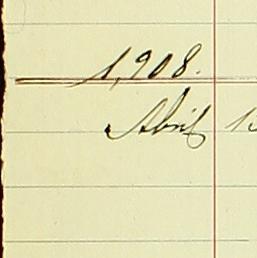 1,908.
Abril 15